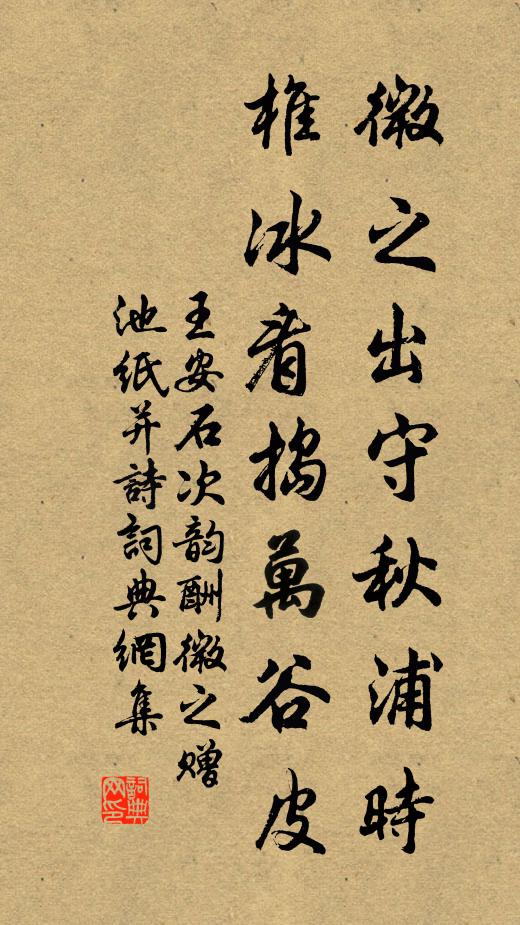 微之出守秋浦時
椎冰看搗萬谷皮
王安石次韵酬微之赠
池紙并詩詞典網集
詞典
网印